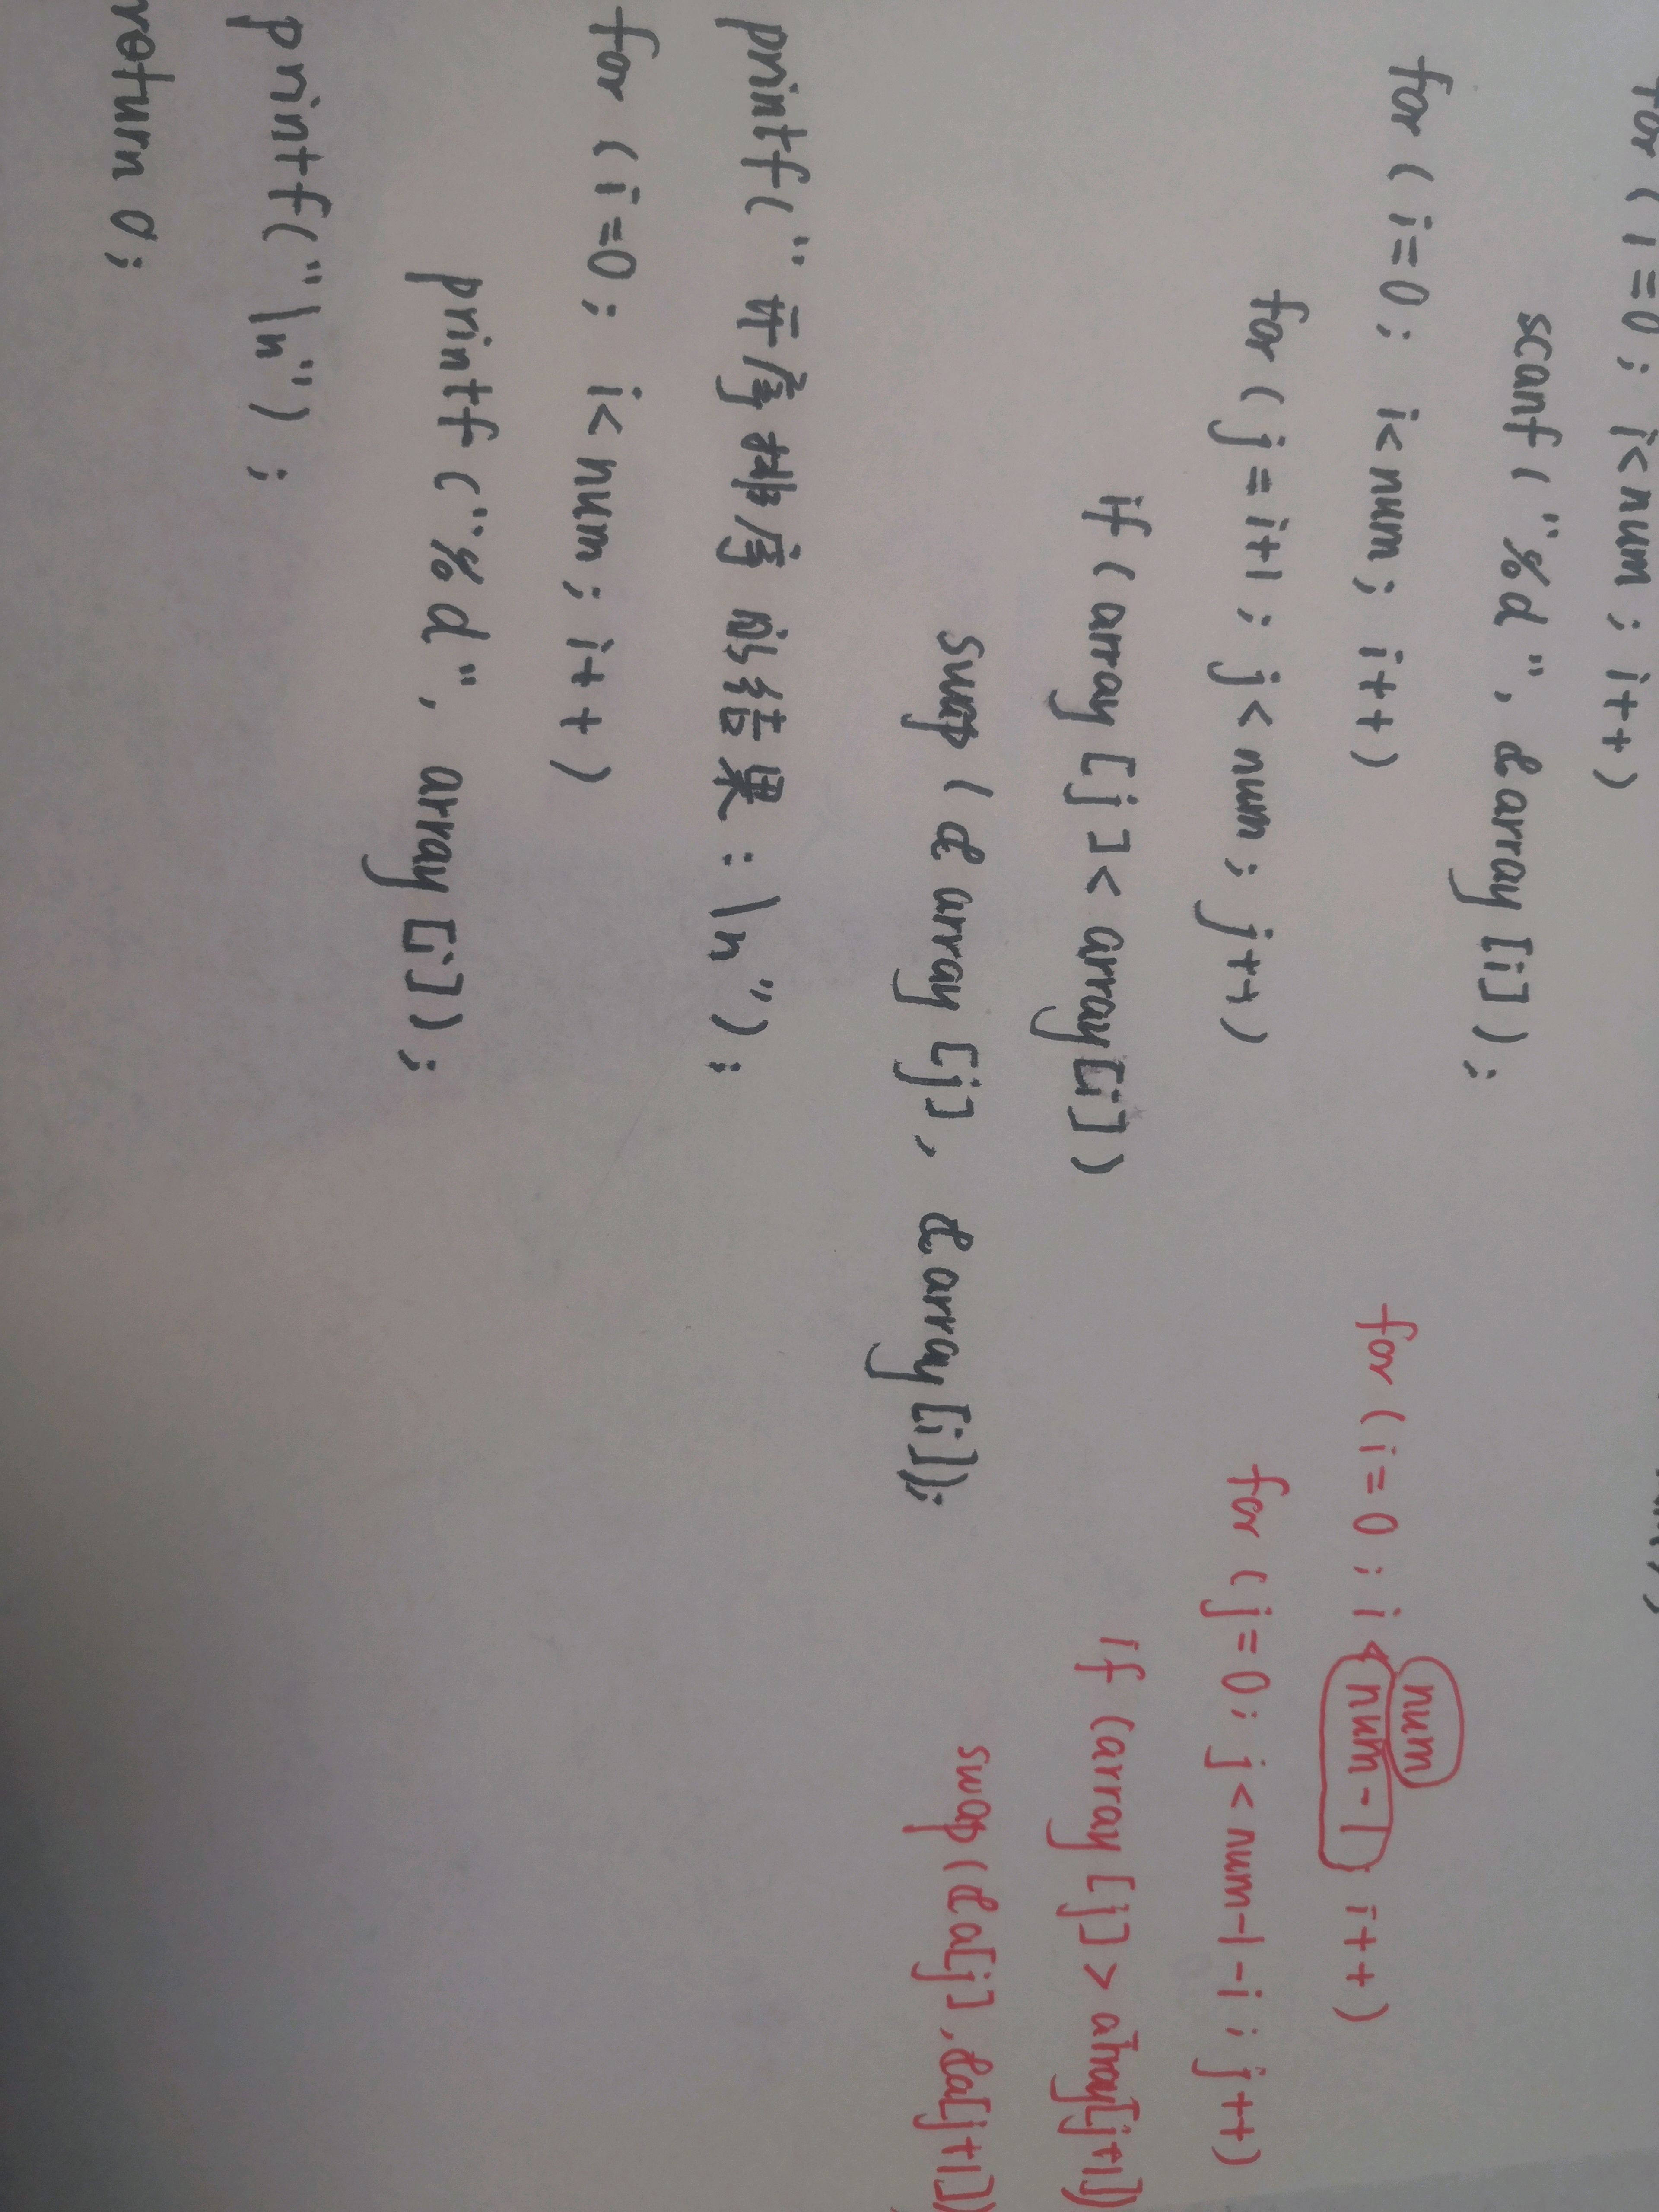 for ( i = 0 ; i < num ; i++ )
scanf ( "%d", &array [i] );
for ( i = 0 ; i < num ; i++ )
for ( i = 0 ; i < num num - 1 ; i++ )
for ( j = i+1 ; j < num ; j++ )
for ( j = 0 ; j < num-1-i ; j++ )
if ( array [ j ] < array [i] )
if ( array [j] > array[j+1] )
swap ( & array [j] , & array [i] );
swap ( &a[j] , &a[j+1] )
printf ( " 升序排序 的结果 : \n " ) ;
for ( i = 0 ; i < num ; i++ )
printf ( "%d" , array [i] ) ;
printf ( " \n " ) ;
return 0 ;